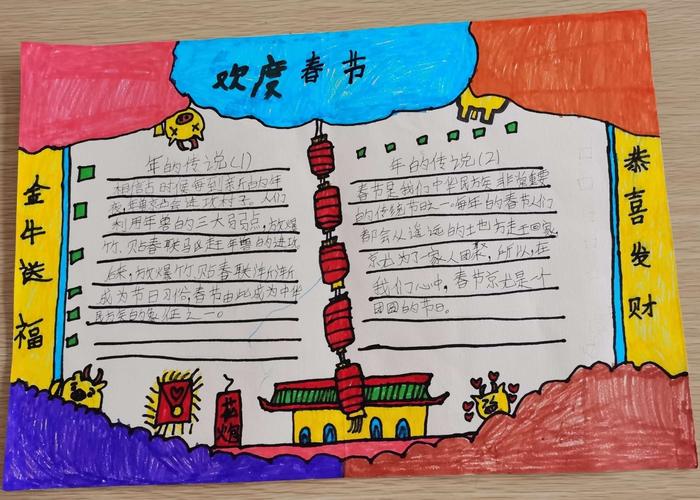 欢度春节
金牛送福
恭喜发财
年的传说(1)
相信古时候每到新的年
夜,年兽就会进攻村子。人们
利用年兽的三大弱点,放爆
竹、贴春联马赶年兽的进攻
后来,放爆竹、贴春联渐渐
成为节日习俗,春节由此成为中华
民族的象征之一。
年的传说(2)
春节是我们中华民族非常重要
的传统节日之一。每年的春节人们
都会从遥远的土地方走于回家,
就为了一家人团聚,所以,在
我们心中,春节就是一个
团圆的节日。